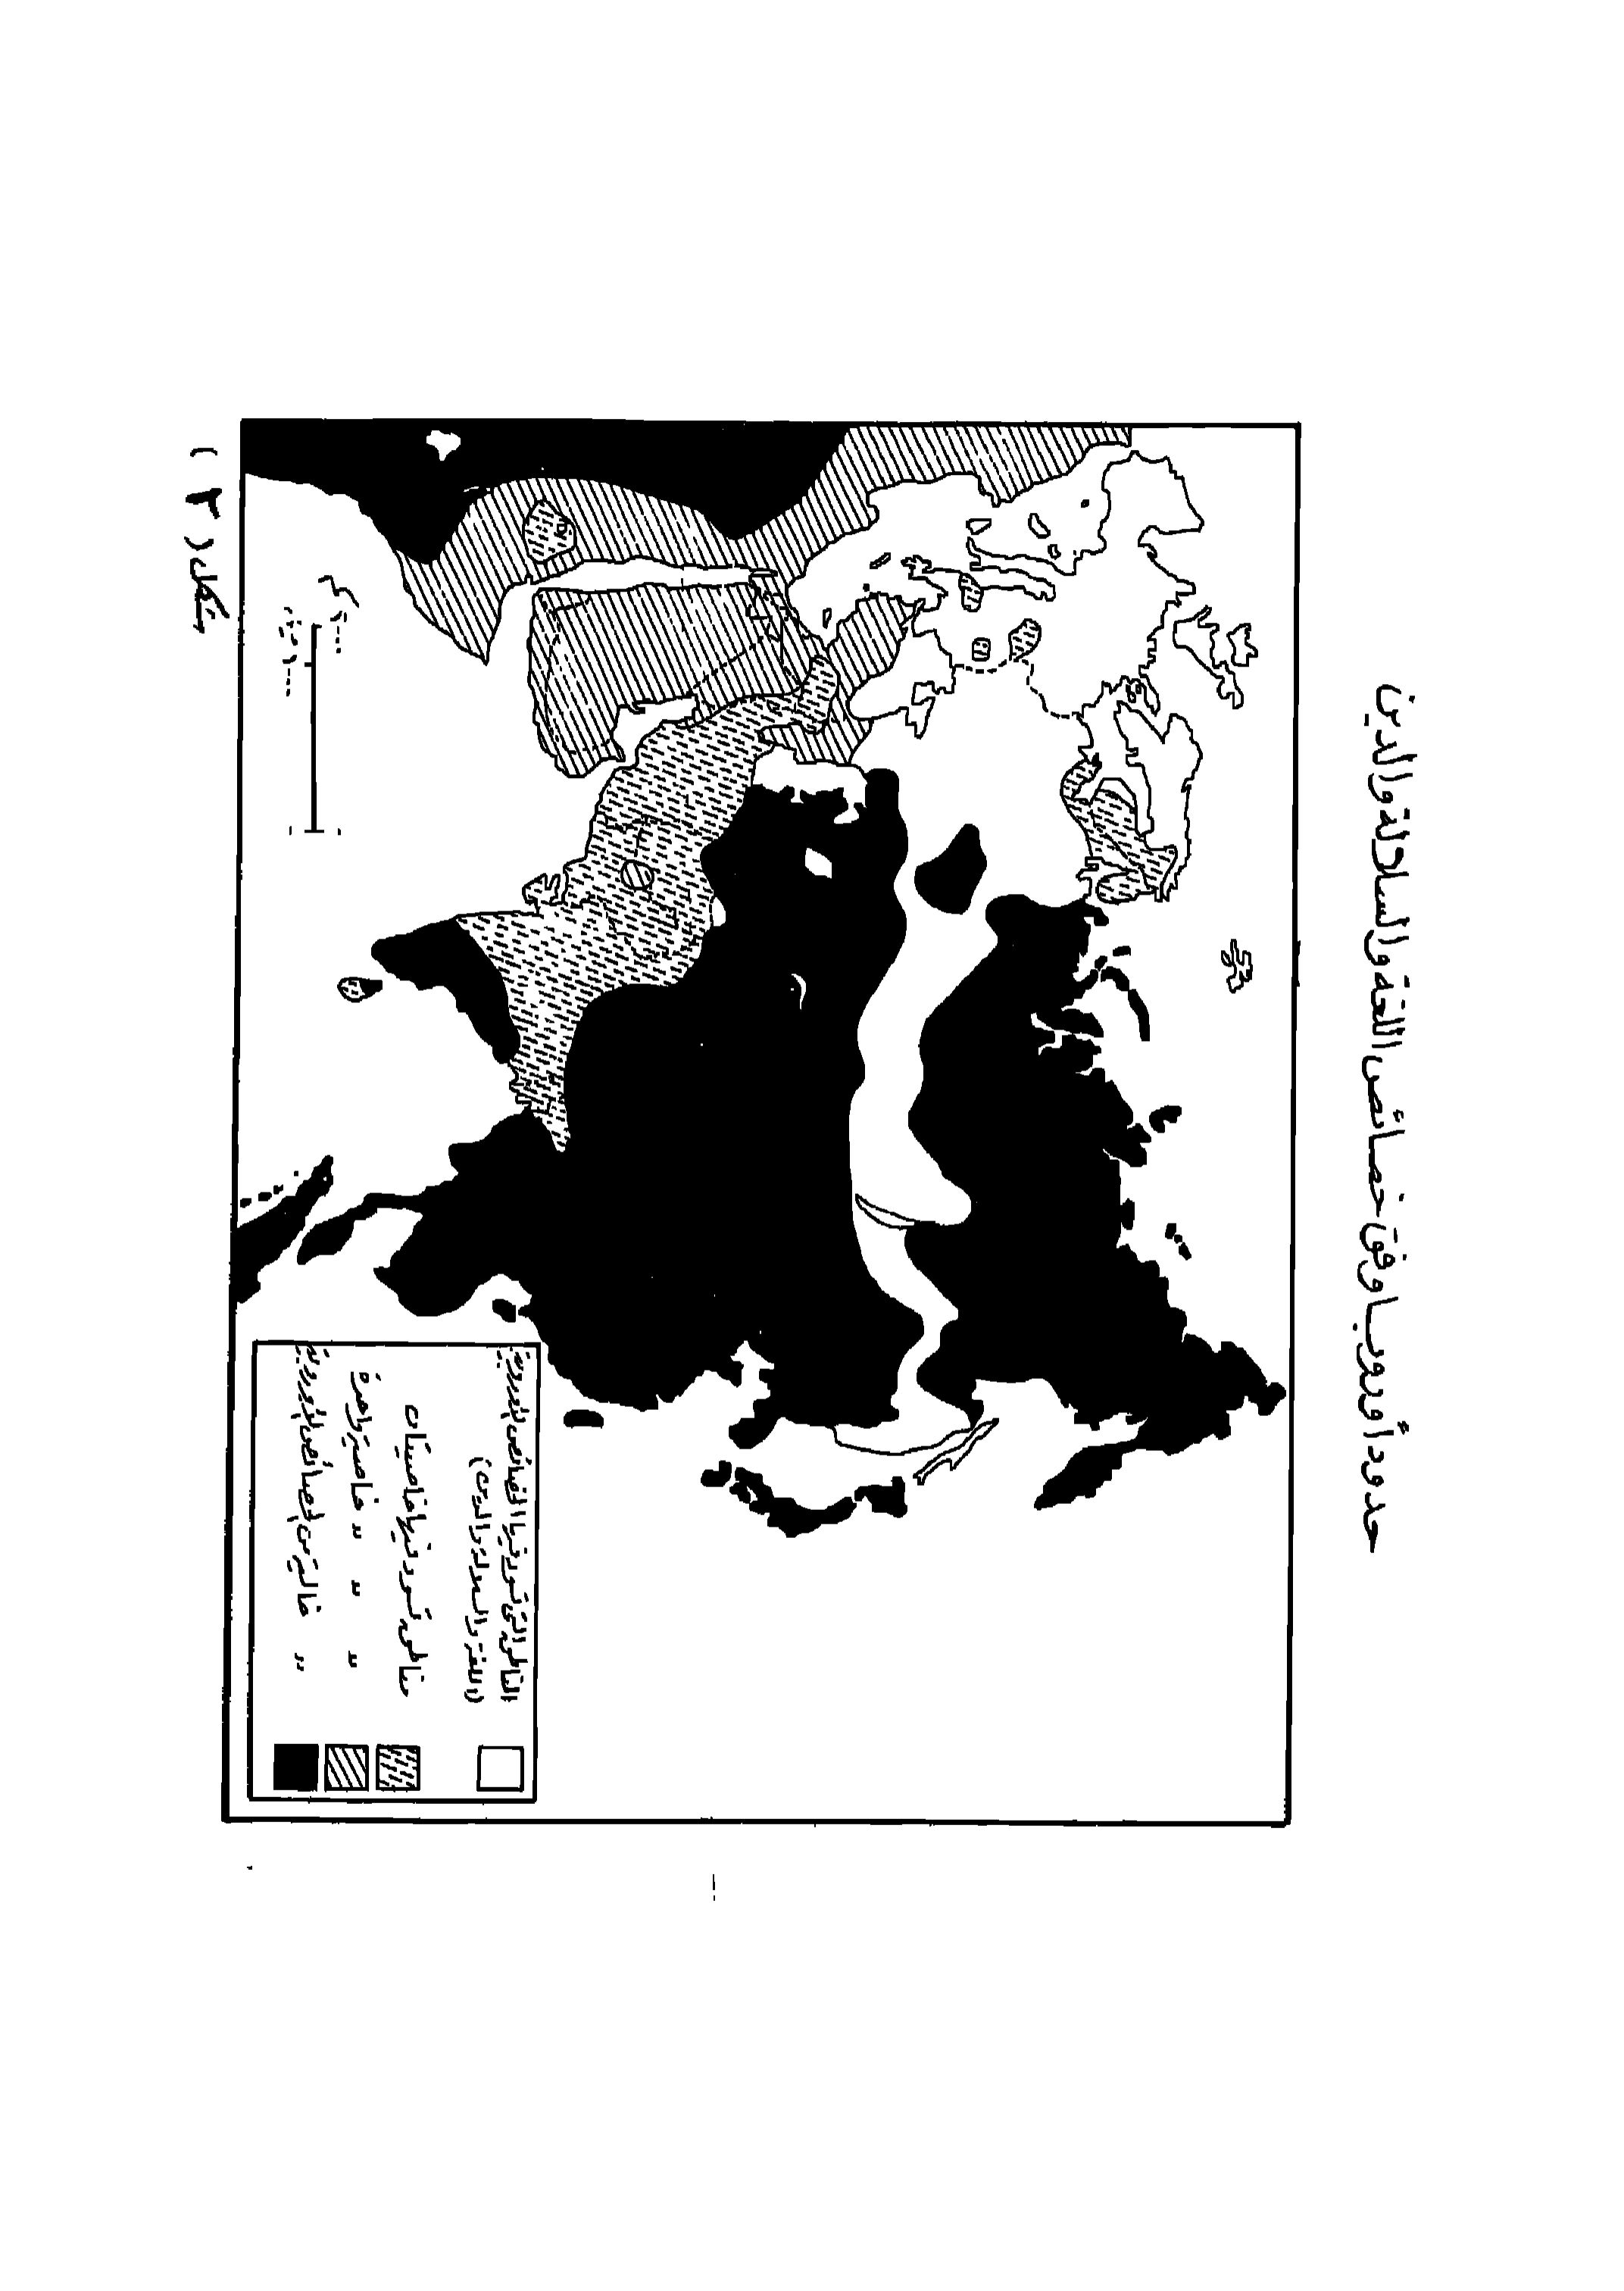 حدود أوروبا وفق خصائص اللغة والسلالة والدين
المناطق التى تسود فيها الخصائص الأوروبية
(اللغة والسلالة والدين)
مناطق تسود فيها خاصيتان
" " " خاصية واحدة
" خالية من الخصائص الأوروبية
كم
شكل (٣)